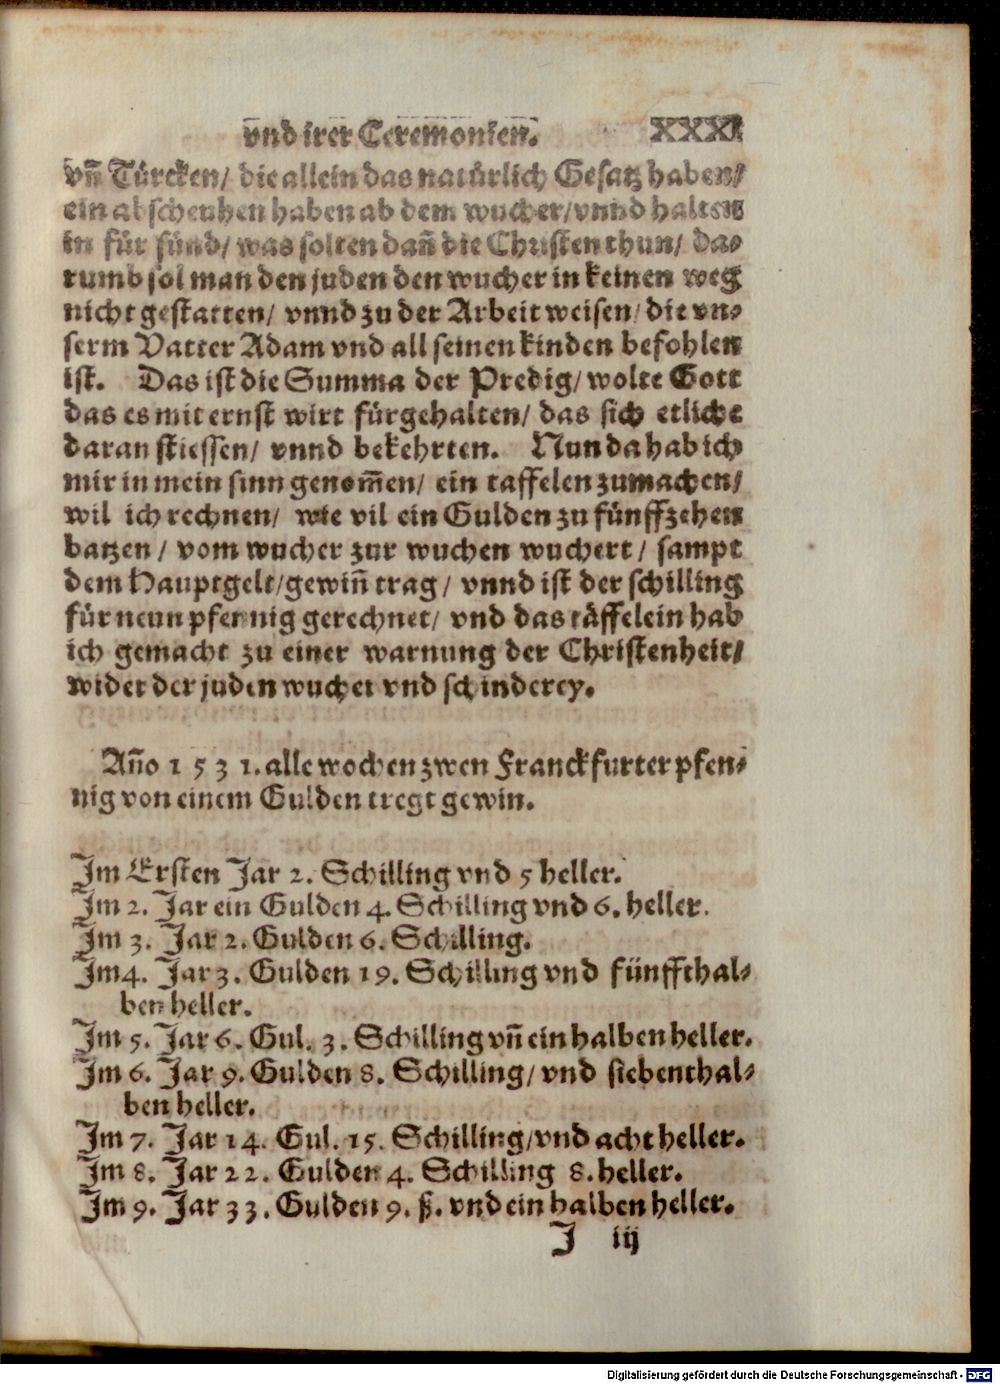 vnd irer Ceremonken. XXXI
vñ Türcken/ die allein das natürlich Gesatz haben/
ein abscheuhen haben ab dem wucher/ vnnd halten
in für sünd/ was solten dañ die Christen thun/ da-
rumb sol man den juden den wucher in keinen weg
nicht gestatten/ vnnd zu der Arbeit weisen/ die vn-
serm Vatter Adam vnd all seinen kinden befohlen
ist. Das ist die Summa der Predig/ wolte Gott
das es mit ernst wirt fürgehalten/ das sich etliche
daran stiessen/ vnnd bekehrten. Nun da hab ich
mir in mein sinn genom̃en/ ein taffelen zumachen/
wil ich rechnen/ wie vil ein Gulden zu fünffzehen
batzen/ vom wucher zur wuchen wuchert/ sampt
dem Hauptgelt/ gewiñ trag/ vnnd ist der schilling
für neun pfennig gerechnet/ vnd das täffelein hab
ich gemacht zu einer warnung der Christenheit/
wider der juden wucher vnd schinderey.
Añо 1531. alle wochen zwen Franckfurter pfen-
nig von einem Gulden tregt gewin.
Im Ersten Jar 2. Schilling vnd 5 heller.
Im 2. Jar ein Gulden 4. Schilling vnd 6. heller.
Im 3. Jar 2. Gulden 6. Schilling.
Im 4. Jar 3. Gulden 19. Schilling vnd fünffthal-
ben heller.
Im 5. Jar 6. Gul. 3. Schilling vñ ein halben heller.
Im 6. Jar 9. Gulden 8. Schilling/ vnd siebenthal-
ben heller.
Im 7. Jar 14. Gul. 15. Schilling/ vnd acht heller.
Im 8. Jar 22. Gulden 4. Schilling 8. heller.
Im 9. Jar 33. Gulden 9. ß. vnd ein halben heller.
J iij
Digitalisierung gefördert durch die Deutsche Forschungsgemeinschaft - DFG